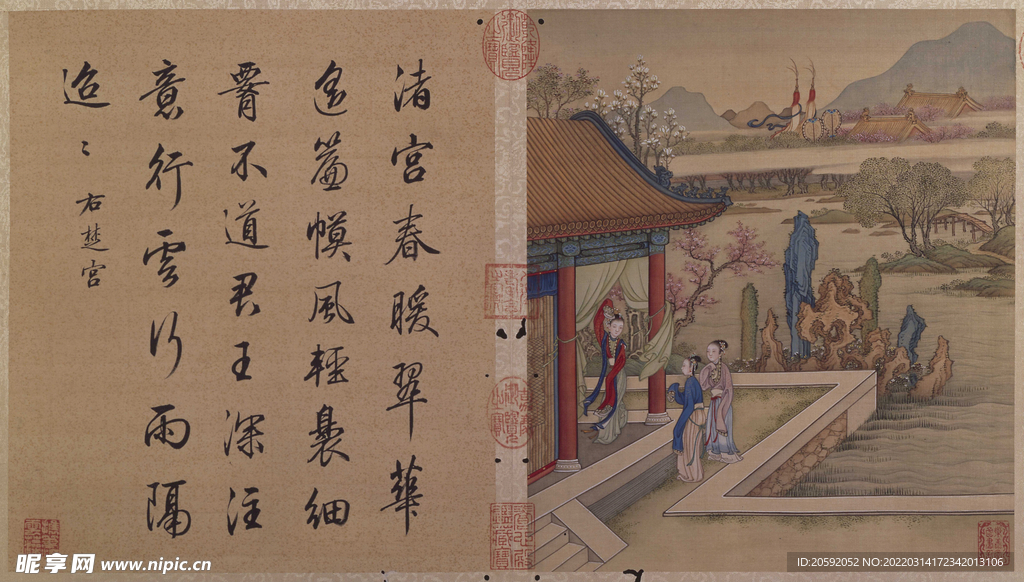 渚宮春暖翠華
遙簾幙風輕裊細
腰不道君王深注
意行雲行雨隔
迢〻
右楚宮
昵享网 www.nipic.cn
ID:20592052 NO:20220314172342013106